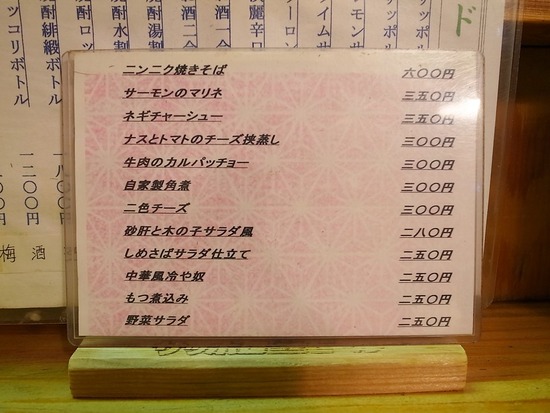 ニンニク焼きそば 六〇〇円
サーモンのマリネ 三五〇円
ネギチャーシュー 三五〇円
ナスとトマトのチーズ挟蒸し 三〇〇円
牛肉のカルパッチョー 三〇〇円
自家製角煮 三〇〇円
二色チーズ 三〇〇円
砂肝と木の子サラダ風 二八〇円
しめさばサラダ仕立て 二五〇円
中華風冷や奴 二五〇円
もつ煮込み 二五〇円
野菜サラダ 二五〇円
梅酒